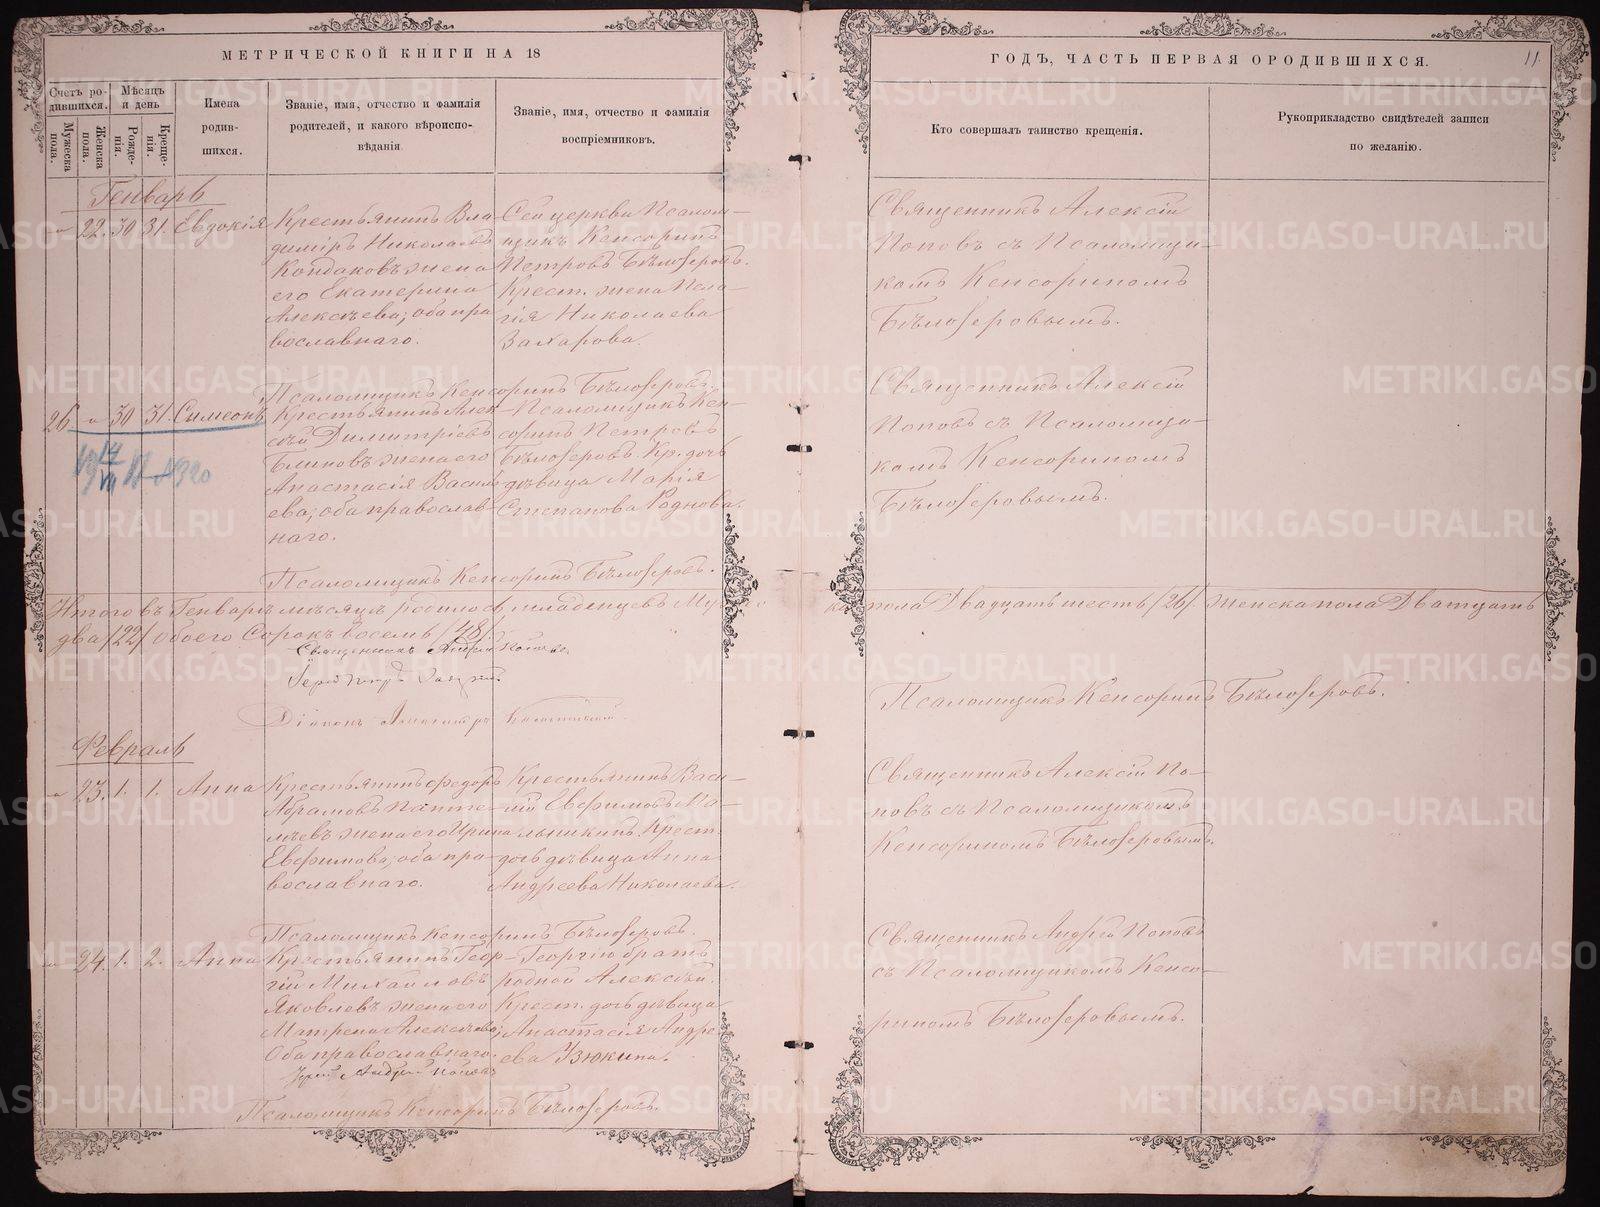 МЕТРИЧЕСКОЙ КНИГИ НА 18
ГОДЪ, ЧАСТЬ ПЕРВАЯ О РОДИВШИХСЯ.
11.
Счетъ ро-
дившихся.
Мужеска пола.
Женска пола.
Мѣсяцъ
и день
Рожде-
нія.
Креще-
нія.
Имена
родив-
шихся.
Званіе, имя, отчество и фамилія
родителей, и какого вѣроиспо-
вѣданія.
Званіе, имя, отчество и фамилія
воспріемниковъ.
Кто совершалъ таинство крещенія.
Рукоприкладство свидѣтелей записи
по желанію.
Генварь
22. 30 31. Евдокія
Крестьянинъ Вла-
димiръ Николаевъ
Кондаковъ жена
его Екатерина
Алексѣева; оба пра
вославнаго.
Сей церкви Псалом-
щикъ Кенсоринъ
Петровъ Бѣлозеровъ.
Крест. жена Пела-
гія Николаева
Захарова.
Священникъ Алексій
Поповъ съ Псаломщи-
комъ Кенсориномъ
Бѣлозеровымъ.
Псаломщикъ Кенсоринъ Бѣлозеровъ.
26 " 30 31. Симеонъ
Крестьянинъ Алек-
сѣй Димитріевъ
Блиновъ жена его
Анастасія Васи
ева; оба православ-
наго.
Псаломщикъ Кен-
соринъ Петровъ
Бѣлозеровъ. Кр. дочь
дѣвица Марія
Степанова Роднова.
Священникъ Алексій
Поповъ съ Псаломщи-
комъ Кенсориномъ
Бѣлозеровымъ.
Псаломщикъ Кенсоринъ Бѣлозеровъ.
Итого въ Генварѣ мѣсяцѣ родилось младенцевъ Муже
ка пола Двадцать шесть /26/ женска пола Дватцать
два /22/ обоего Сорокъ восемь /48/.
Священникъ Андрей
Діаконъ Александръ
Псаломщикъ Кенсоринъ Бѣлозеровъ.
Февраль
" 23. 1. 1. Анна
Крестьянинъ Федоръ
Абрамовъ Панте-
лѣевъ жена его Ирина
Евфимова; оба пра-
вославнаго.
Крестьянинъ Васи-
лій Евфимовъ Ма-
лышкинъ. Крест.
дочь дѣвица Анна
Андреева Николаева.
Священникъ Алексій По-
повъ съ Псаломщикомъ
Кенсориномъ Бѣлозеровымъ.
Псаломщикъ Кенсоринъ Бѣлозеровъ.
" 24. 1. 2. Анна
Крестьянинъ Геор-
гій Михайловъ
Яковлевъ жена его
Матрена Алексѣева;
Оба православнаго.
Георгію братъ
родной Алексѣй.
Крест. дочь дѣвица
Анастасія Андре-
ева Узюкина.
Священникъ Андрей Поповъ
съ Псаломщикомъ Кенсо-
риномъ Бѣлозеровымъ.
Іерей Андрей Поповъ
Псаломщикъ Кенсоринъ Бѣлозеровъ.
METRIKI.GASO-URAL.RU